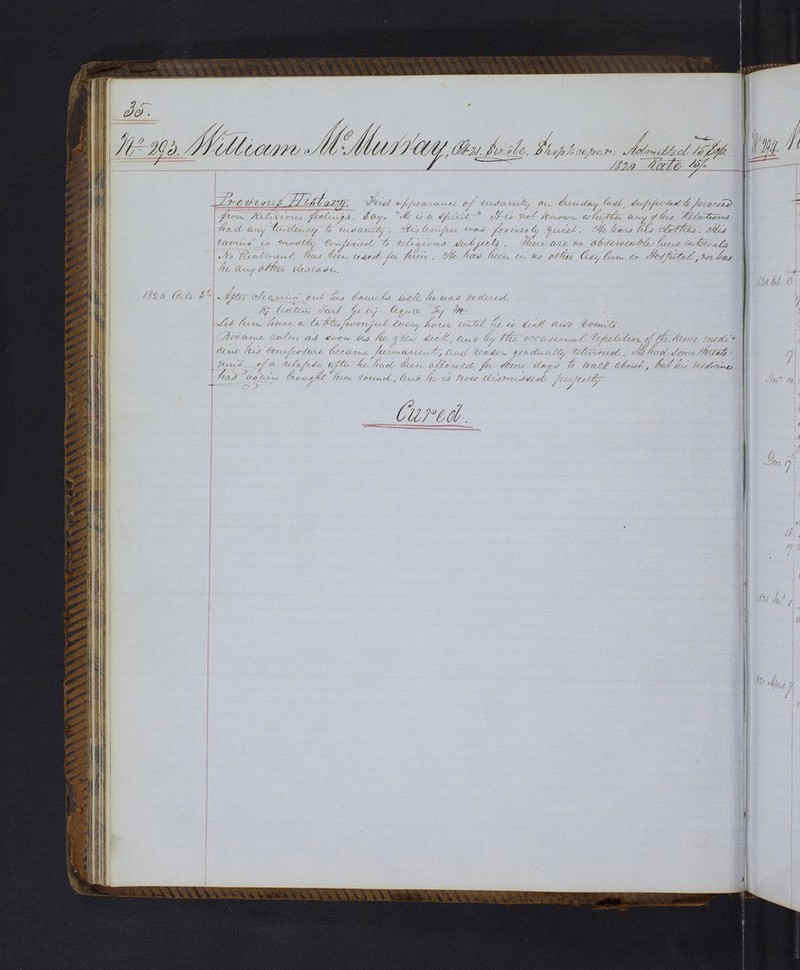 35.
No 293. William McMurray, Æt 21. Single. Shopkeeper. Admitted 15 Sepr
1820 Rate 15/
Previous History. First appearance of insanity on Sunday last, supposed to proceed
from Religious feelings. Says "He is a Spirit" It is not known whether any of his Relations
had any tendency to insanity. His temper was formerly quiet. He tears his clothes. His
raving is mostly confined to religious subjects. There are no observable lucid intervals
No treatment has been used for him. He has been in no other Asylum or Hospital, nor has
he any other disease.
1820 Octr 3d After clearing out his bowels well he was ordered
Antim Tart Gr ij. Aqua M.
Let him have a tablespoonful every hour until he is sick and vomits.
Became calm as soon as he grew sick, and by the occasional repetition of the same medi-
cine his composure became permanent, and reason gradually returned. He had some threate-
ning of a relapse after he had been allowed for some days to walk about, but his medicine
has again brought him round, and he is now dismissed perfectly
Cured.
No 294.
1820 Oct
17
Novr
Decr 17
18
19
1821 Jany 1
1821 April 7